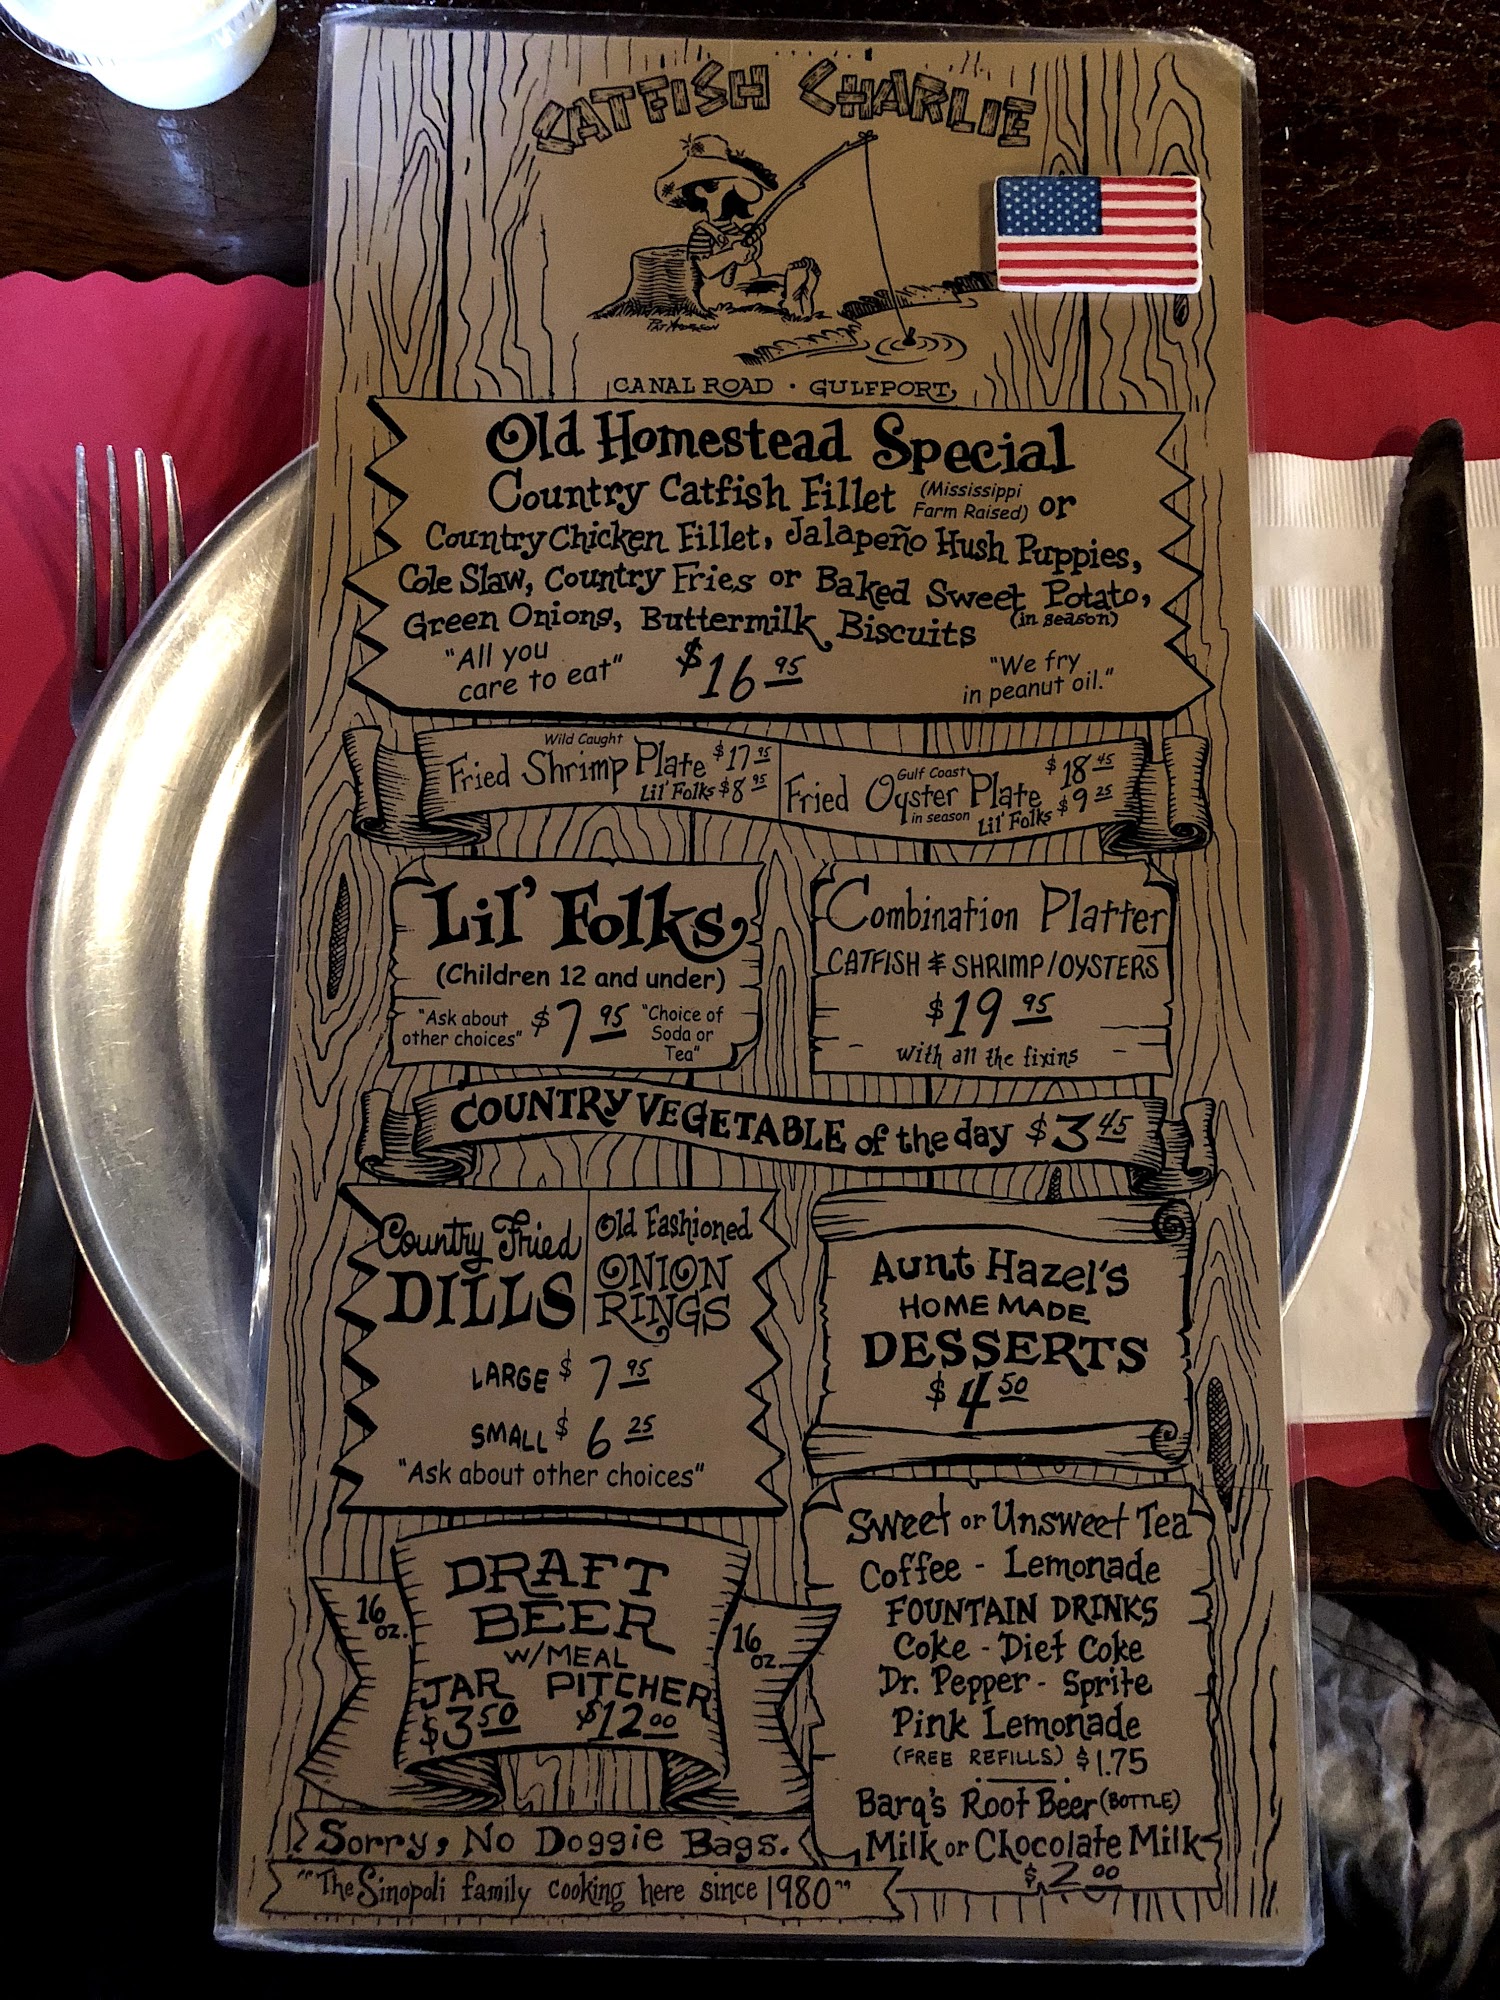 CATFISH CHARLIE
CANAL ROAD · GULFPORT
Old Homestead Special
Country Catfish Fillet (Mississippi Farm Raised) or
Country Chicken Fillet, Jalapeño Hush Puppies,
Cole Slaw, Country Fries or Baked Sweet Potato,
(in season)
Green Onions, Buttermilk Biscuits
"All you care to eat"
$16 95
"We fry in peanut oil."
Wild Caught
Fried Shrimp Plate $17 95
Lil' Folks $8 95
Gulf Coast
Fried Oyster Plate $18 45
in season
Lil' Folks $9 25
Lil' Folks
(Children 12 and under)
"Ask about other choices"
$7 95
"Choice of Soda or Tea"
Combination Platter
CATFISH & SHRIMP/OYSTERS
$19 95
with all the fixins
COUNTRY VEGETABLE of the day $3 45
Country Fried
DILLS
Old Fashioned
ONION
RINGS
LARGE $7 95
SMALL $6 25
"Ask about other choices"
Aunt Hazel's
HOME MADE
DESSERTS
$4 50
16 oz.
DRAFT
BEER
W/MEAL
JAR
$3 50
PITCHER
$12 00
16 oz.
Sweet or Unsweet Tea
Coffee - Lemonade
FOUNTAIN DRINKS
Coke - Diet Coke
Dr. Pepper - Sprite
Pink Lemonade
(FREE REFILLS) $1.75
Barq's Root Beer (BOTTLE)
Milk or Chocolate Milk
$2 00
Sorry, No Doggie Bags.
"The Sinopoli family cooking here since 1980"